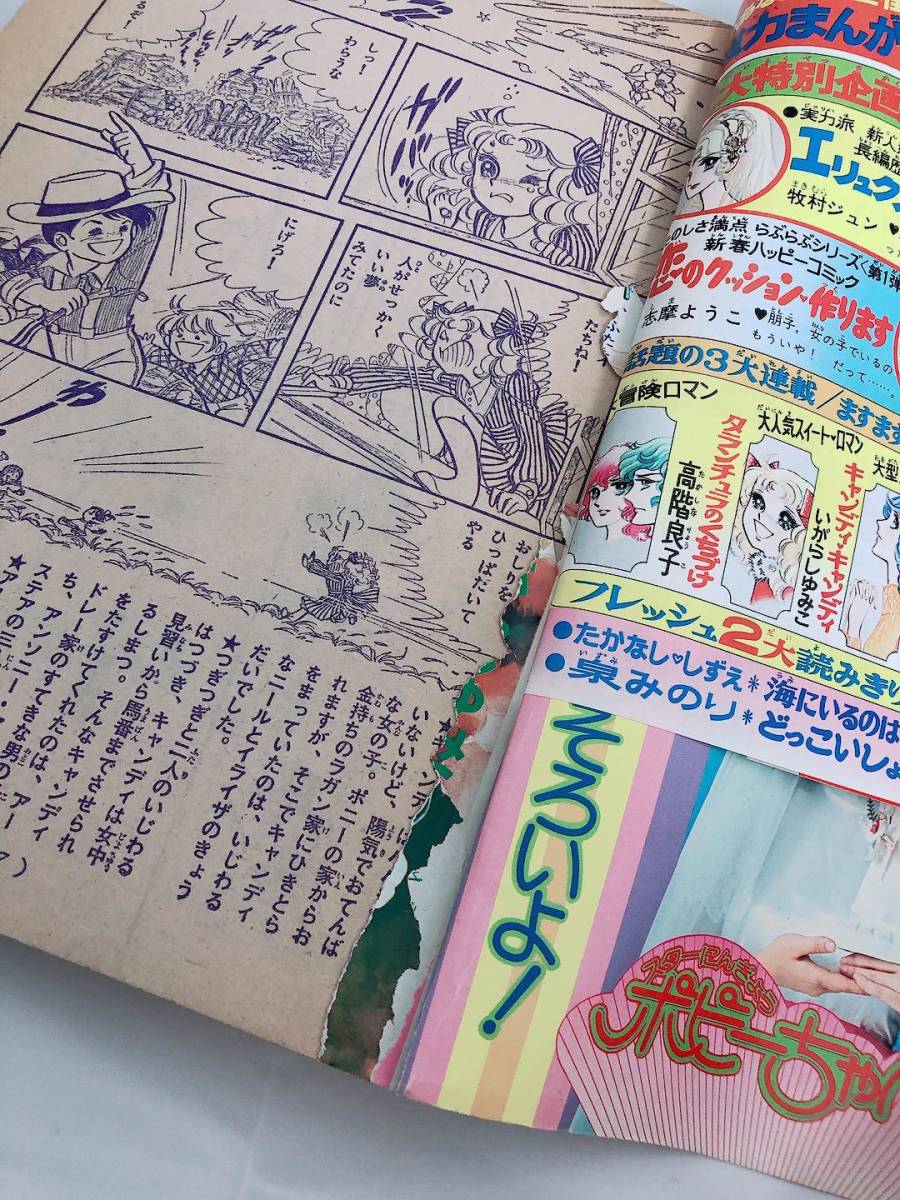 しっ!
わらうな
にげろ!
人がせっかく
いい夢
みてたのに
たちね!
おしりを
ひっぱだいて
やる
いないけど、陽気でおてんば
な女の子。ポニーの家からお
金持ちのラガン家にひきとら
れますが、そこでキャンディ
をまっていたのは、いじわる
なニールとイライザのきょう
だいでした。
★つぎつぎと二人のいじわる
はつづき、キャンディは女中
見習いから馬番までさせられ
るしまつ。そんなキャンディ
をたすけてくれたのは、アー
ドレー家のすてきな男の
ち、アンソニー・
ステアの三
力まんが
大特別企画
●実力派 新人
長編
エリュク
牧村ジュン
のしさ満点 らぶらぶシリーズ〈第1弾
新春ハッピーコミック
恋のクッション作ります
志摩ようこ ♥朋子、女の子でいるの
もういや! だって……
話題の3大連載/ますます
冒険ロマン
タランチュラのくちづけ
高階良子
大人気スイート・ロマン
キャンディ・キャンディ
いがらしゆみこ
大型
フレッシュ2大読みきり
●たかなし♡しずえ*海にいるのは
●泉みのり*どっこいしょ
そろいよ!
スターにんぎょう
ポピーちゃん